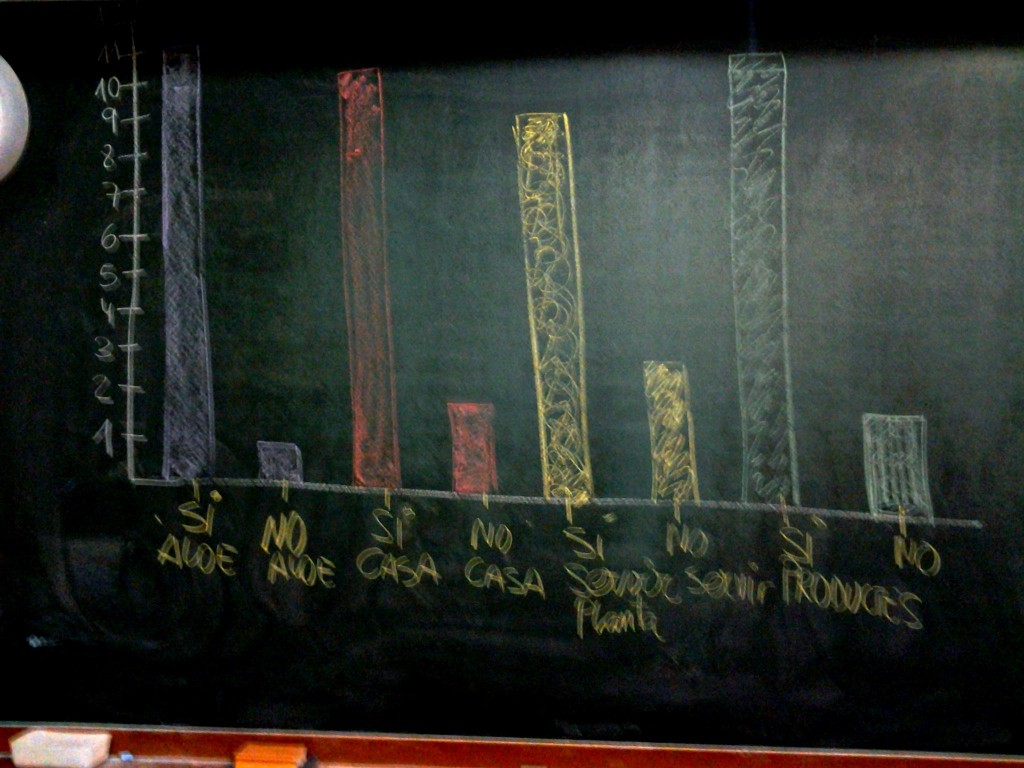 11
10
9
8
7
6
5
4
3
2
1
SI NO SI NO SI NO SI NO
ALOE ALOE CASA CASA Servir Servir PRODUCTES
Planta